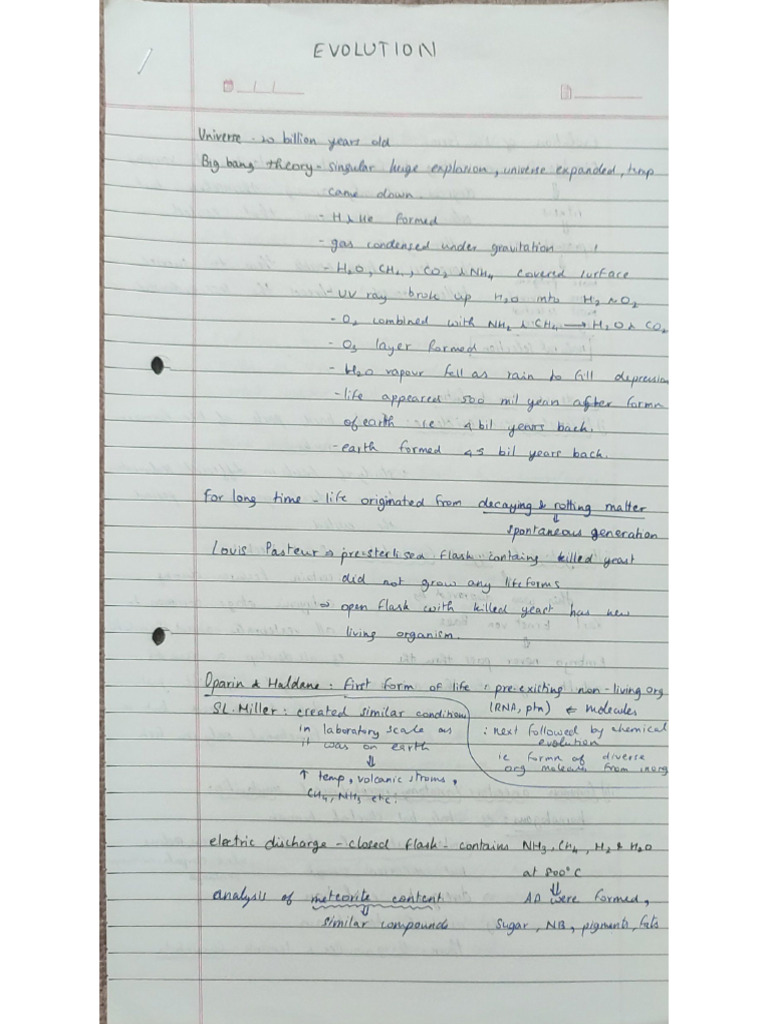 EVOLUTION
Universe - 20 billion years old
Big bang theory - singular huge explosion, universe expanded, temp
came down.
- H & He formed
- gas condensed under gravitation
- H₂O, CH₄, CO₂ & NH₄ covered surface
- UV ray broke up H₂O into H₂ & O₂
- O₂ combined with NH₂ & CH₄ → H₂O & CO₂
- O₃ layer formed
- H₂O vapour fell as rain to fill depression
- life appeared 500 mil years after formn
of earth i.e 4 bil years back.
- earth formed 4.5 bil years back.
For long time - life originated from decaying & rotting matter
⇓
spontaneous generation
Louis Pasteur ⇒ pre-sterlised flask containing killed yeast
did not grow any lifeforms
⇒ open flask with killed yeast has new
living organism.
Oparin & Haldane : first form of life : pre-existing non-living org
(RNA, ptn) ← molecules
S.L. Miller : created similar condition
: next followed by chemical
in laboratory scale as
evolution
it was on earth
ie formn of diverse
⇓
org molecules from inorg
↑ temp, volcanic stroms,
CH₄, NH₃ etc.
electric discharge - closed flask - contains NH₃, CH₄, H₂ & H₂O
at 800°C
⇓
analysis of meteorite content
AA were formed,
⇓
similar compounds
Sugar, NB, pigments, fats